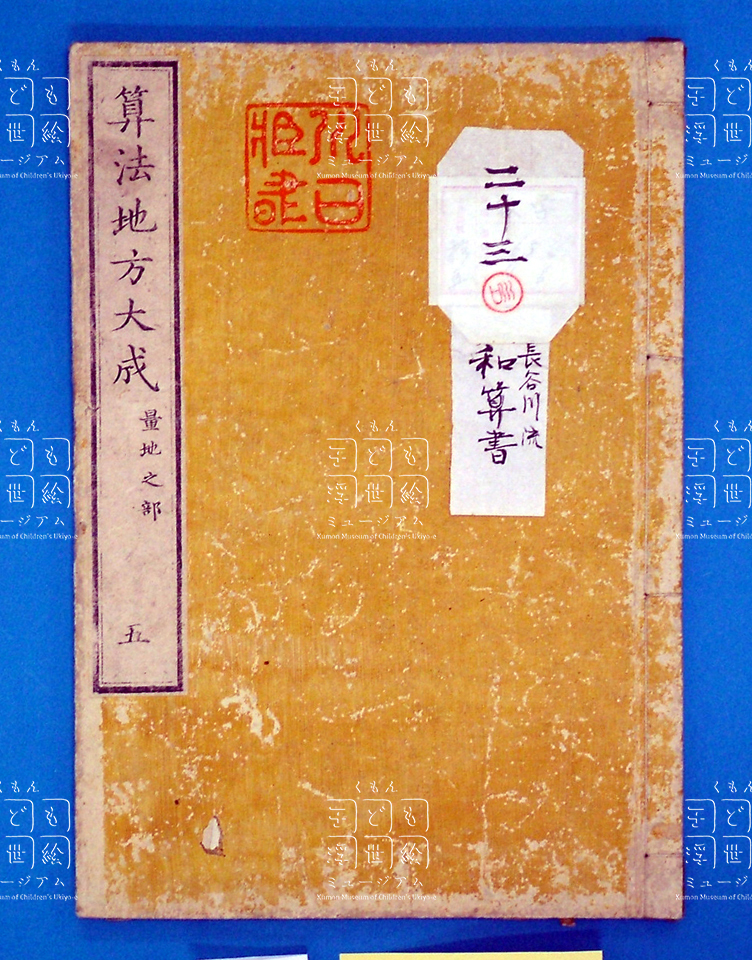 算法地方大成
量地之部
五
二十三
長谷川流
和算書
くもん
子ども
浮世絵
ミュージアム
Kumon Museum of Children's Ukiyo-e